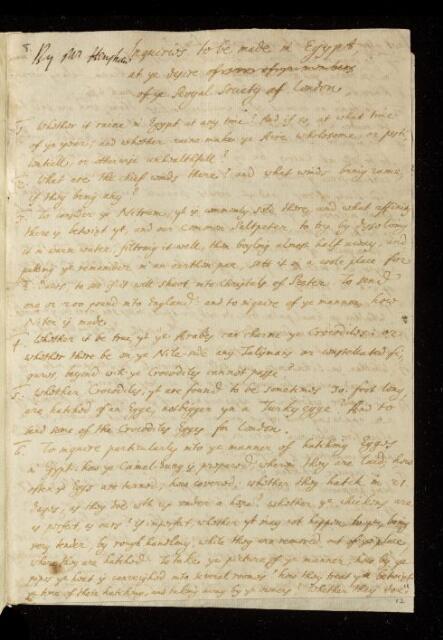 By Mr Henshaw Inquiries to be made in Egypt
at ye desire of some of ye members
of ye Royal Society of London.
1. Whether it raine in Egypt at any time? And if so, at what time
of ye yeare; and whether raine makes ye Aire wholesome, or pesti-
lentiall, or otherwise unhealthfull?
2. What are the chief winds there? and what winds bring raine,
if they bring any?
3. To consider ye Nitrum, yt is commonly sold there, and what affinity
there is betwixt yt, and our Common Saltpeter, to try by dissolving
is in warm water, filtring it well, then boyling almost half away, and
putting ye remember in an earthen pan, sett it in a coole place for
2 daies to see if it will shoot into Christals of Peeter. To send
one or two pound into England: and to inquire of ye manner, how
Niter is made.
4. Whether it be true, yt ye Arabs can charme ye Crocodiles: or
whether there be on ye Nile-side any Talismans or constellated fi-
gures, beyond wch ye Crocodiles cannot passe?
5. Whether Crocodiles, yt are found to be sometimes 30. foot long,
are hatched of an Egge, no bigger yn a Turky egge? And to
send some of the Crocodiles Eggs for London.
6. To inquire particularly into ye manner of hatching Eggs
in Egypt: how ye Camel-dung is prepared, wherein they are laid; how
often ye Eggs are turned; how covered; whether they hatch in 21
dayes, as they doe wth us under a hen? whether ye chickens are
as perfect, as ours? if imperfect, whether yt may not happen, being
very tender, by rough handling, while they are removed out of ye place
where they are hatched. To take ye picture of ye manner, how by ye
pipes ye heat is conveighed into severall roomes? how they treat ye
ye time of these hatching, and taking away by ye owners? Whether they doe
12